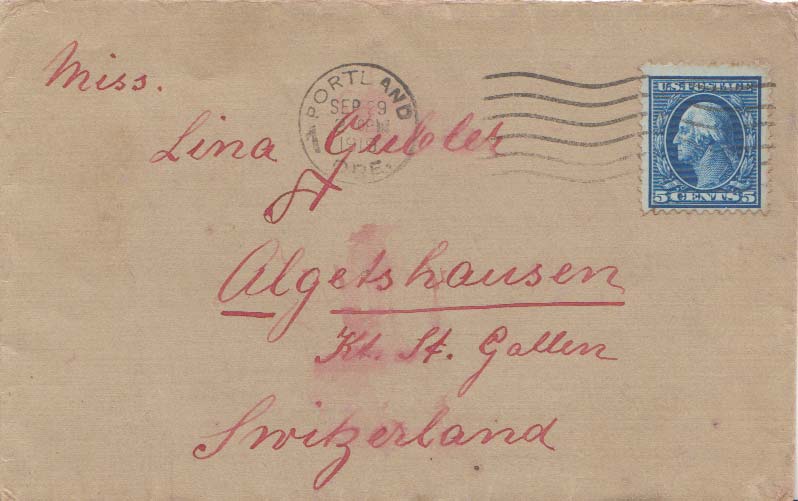 Miss.
Lina Gubler
Algetshausen
Kt. St. Gallen
Switzerland
PORTLAND
SEP
ORE.
U.S. POSTAGE
5 CENTS 5